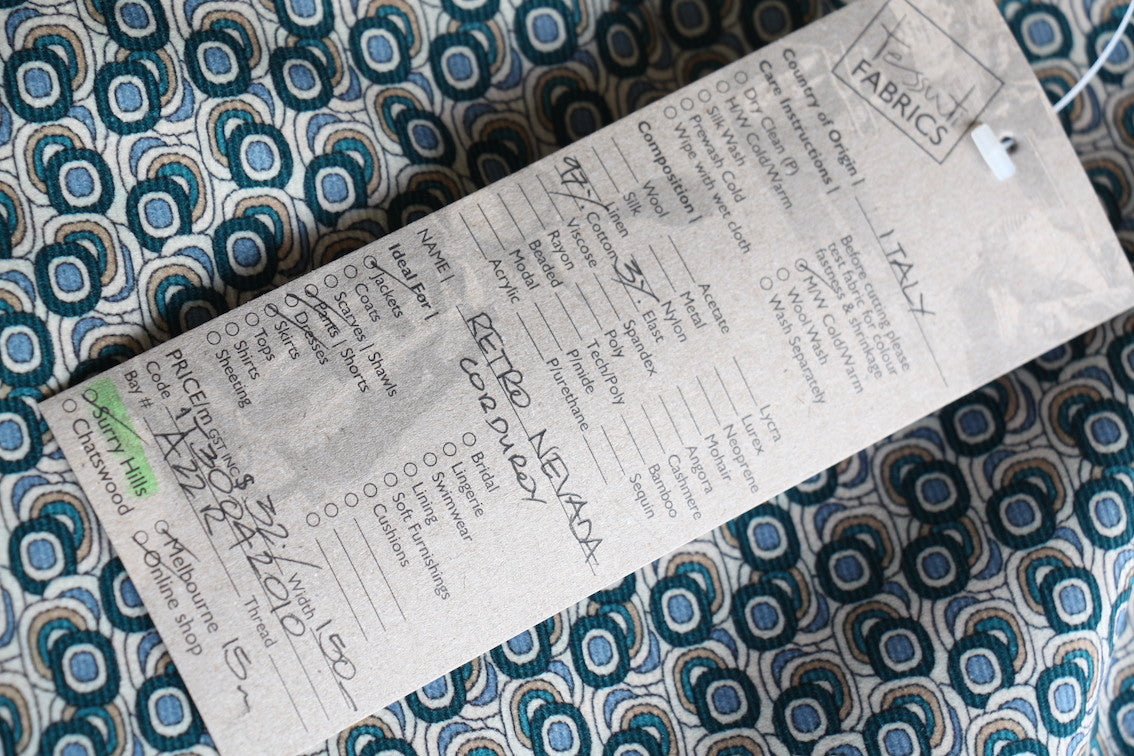 tessuti
FABRICS
Country of Origin | ITALY
Care Instructions |
Dry Clean (P)
H/W Cold/Warm
Silk Wash
Prewash Cold
Wipe with wet cloth
Before cutting please
test fabric for colour
fastness & shrinkage
M/W Cold/Warm
Wool Wash
Wash Separately
Composition |
Wool
Silk
Linen
97% Cotton
Viscose
Rayon
Beaded
Modal
Acrylic
Acetate
Metal
Nylon
3% Elast
Spandex
Poly
Tech/Poly
P/mide
P/urethane
Lycra
Lurex
Neoprene
Mohair
Angora
Cashmere
Bamboo
Sequin
NAME | RETRO NEVADA
CORDUROY
Ideal For |
Jackets
Coats
Scarves | Shawls
Pants | Shorts
Dresses
Skirts
Tops
Shirts
Sheeting
Bridal
Lingerie
Swimwear
Lining
Soft Furnishings
Cushions
PRICE/m GST INC $ 32.- Width 150
Code
Bay # A22 R Thread
Surry Hills
Chatswood
Melbourne 15m
Online shop